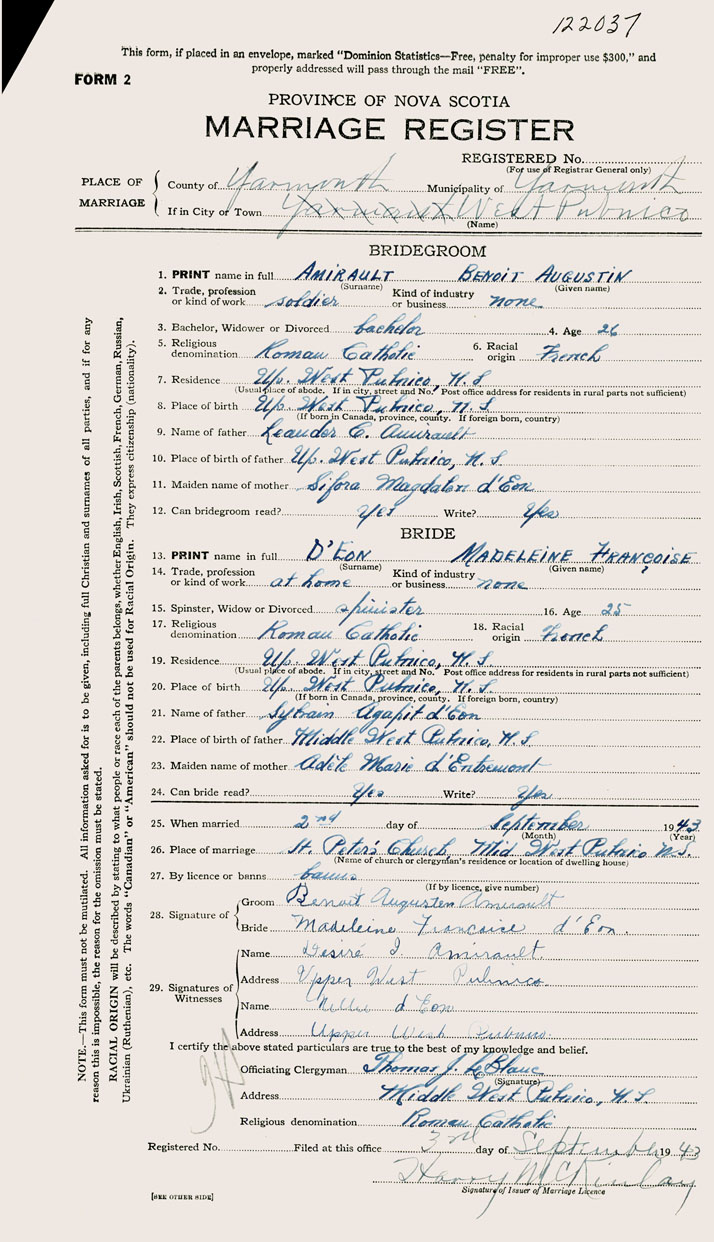 122037
This form, if placed in an envelope, marked "Dominion Statistics—Free, penalty for improper use $300," and
properly addressed will pass through the mail "FREE".
FORM 2
PROVINCE OF NOVA SCOTIA
MARRIAGE REGISTER
REGISTERED No.
(For use of Registrar General only)
PLACE OF MARRIAGE
County of Yarmouth Municipality of Yarmouth
If in City or Town Yarmouth West Pubnico
(Name)
BRIDEGROOM
1. PRINT name in full AMIRAULT BENOIT AUGUSTIN
(Surname) (Given name)
2. Trade, profession or kind of work soldier Kind of industry or business none
3. Bachelor, Widower or Divorced bachelor 4. Age 26
5. Religious denomination Roman Catholic 6. Racial origin French
7. Residence Up. West Pubnico, N.S.
(Usual place of abode. If in city, street and No. Post office address for residents in rural parts not sufficient)
8. Place of birth Up. West Pubnico, N.S.
(If born in Canada, province, county. If foreign born, country)
9. Name of father Leander C. Amirault
10. Place of birth of father Up. West Pubnico, N.S.
11. Maiden name of mother Sifora Magdalen d'Eon
12. Can bridegroom read? Yes Write? Yes
BRIDE
13. PRINT name in full D'EON MADELEINE FRANÇOISE
(Surname) (Given name)
14. Trade, profession or kind of work at home Kind of industry or business none
15. Spinster, Widow or Divorced spinister 16. Age 25
17. Religious denomination Roman Catholic 18. Racial origin French
19. Residence Up. West Pubnico, N.S.
(Usual place of abode. If in city, street and No. Post office address for residents in rural parts not sufficient)
20. Place of birth Up. West Pubnico, N.S.
(If born in Canada, province, county. If foreign born, country)
21. Name of father Sylvain Agapit d'Eon
22. Place of birth of father Middle West Pubnico, N.S.
23. Maiden name of mother Adèle Marie d'Entremont
24. Can bride read? Yes Write? Yes
25. When married 2nd day of September 1943
(Month) (Year)
26. Place of marriage St. Peter's Church, Mid. West Pubnico N.S.
(Name of church or clergyman's residence or location of dwelling house)
27. By licence or banns banns
(If by licence, give number)
28. Signature of
Groom Benoit Augusten Amirault
Bride Madeleine Francoise d'Eon.
29. Signatures of Witnesses
Name Desiré J. Amirault
Address Upper West Pubnico
Name Nellie d'Eon
Address Upper West Pubnico
I certify the above stated particulars are true to the best of my knowledge and belief.
Officiating Clergyman Thomas J. LeBlanc
(Signature)
Address Middle West Pubnico, N.S.
Religious denomination Roman Catholic
Registered No. Filed at this office 3rd day of September 1943
Harry McKinlay
Signature of Issuer of Marriage Licence
[SEE OTHER SIDE]
NOTE.—This form must not be mutilated. All information asked for is to be given, including full Christian and surnames of all parties, and if for any
reason this is impossible, the reason for the omission must be stated.
RACIAL ORIGIN will be described by stating to what people or race each of the parents belongs, whether English, Irish, Scottish, French, German, Russian,
Ukrainian (Ruthenian), etc. The words "Canadian" or "American" should not be used for Racial Origin. They express citizenship (nationality).